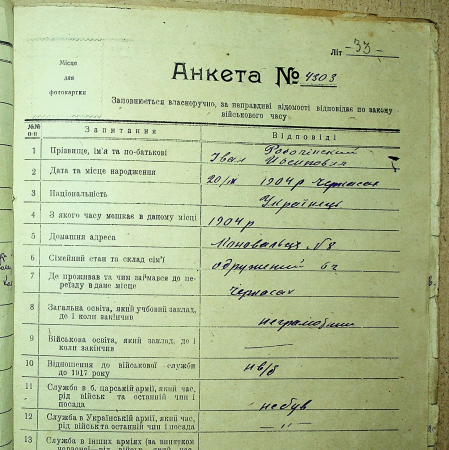 Літ -33-
Місце
для
фотокартки
Анкета № 4303
Заповнюється власноручно, за неправдиві відомості відповідає по закону
військового часу
№№ п-п Запитання Відповіді
1 Прізвище, ім'я та по-батькові Іван Йосипович
2 Дата та місце народження 20/ІХ 1904 р Черкасах
3 Національність Українець
4 З якого часу мешкає в даному місці 1904 р
5 Домашня адреса №8
6 Сімейний стан та склад сім'ї одружений
7 Де проживав та чим займався до пе-
реїзду в дане місце Черкасах
8 Загальна освіта, який учбовий заклад,
де і коли закінчив
9 Військова освіта, який заклад, де і
коли закінчив —
10 Відношення до військової служби
до 1917 року нв/б
11 Служба в б. царській армії, який час,
рід військ та останній чин і
посада небув
12 Служба в Українській армії, який час,
рід військ та останній чин і посада — " —
13 Служба в інших арміях (за винятком